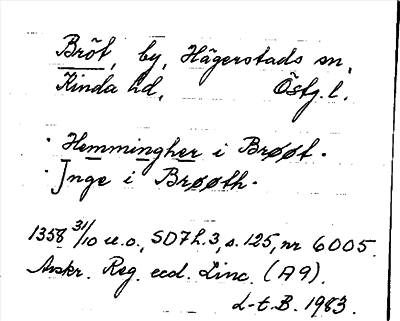 Bröt, by, Hägerstads sn,
Kinda hd, Östg. l.
· Hemmingher i Brøøt.
· Jnge i Brøøth.
1358 31/10 u.o., SD7h.3, s. 125, nr 6005.
Avskr. Reg. eccl. Linc. (A9).
L-t.B. 1983.